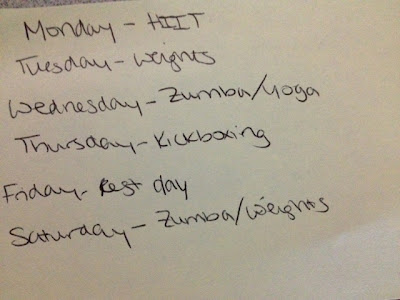 Monday - HIIT
Tuesday - weights
Wednesday - Zumba/Yoga
Thursday - Kickboxing
Friday - Rest day
Saturday - Zumba/weights